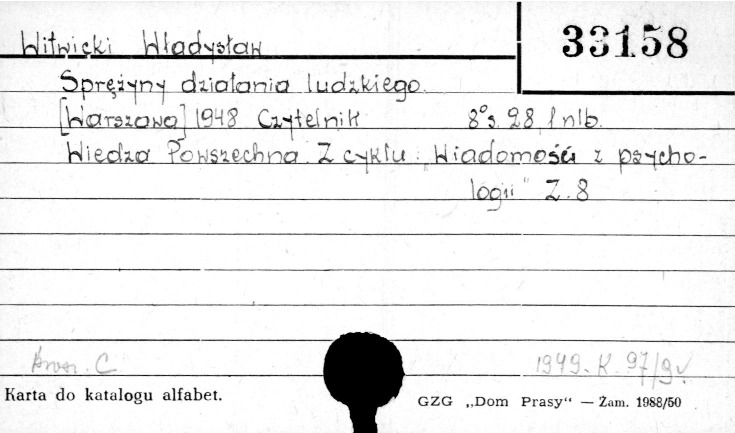 33158
Witwicki Władysław
Sprężyny działania ludzkiego.
[Warszawa] 1948 Czytelnik 8° s. 28, 1 nlb.
Wiedza Powszechna. Z cyklu: „Wiadomości z psycho-
logii" Z. 8
Brosz. C
1949. K. 97/9
Karta do katalogu alfabet.
GZG „Dom Prasy" — Zam. 1988/50